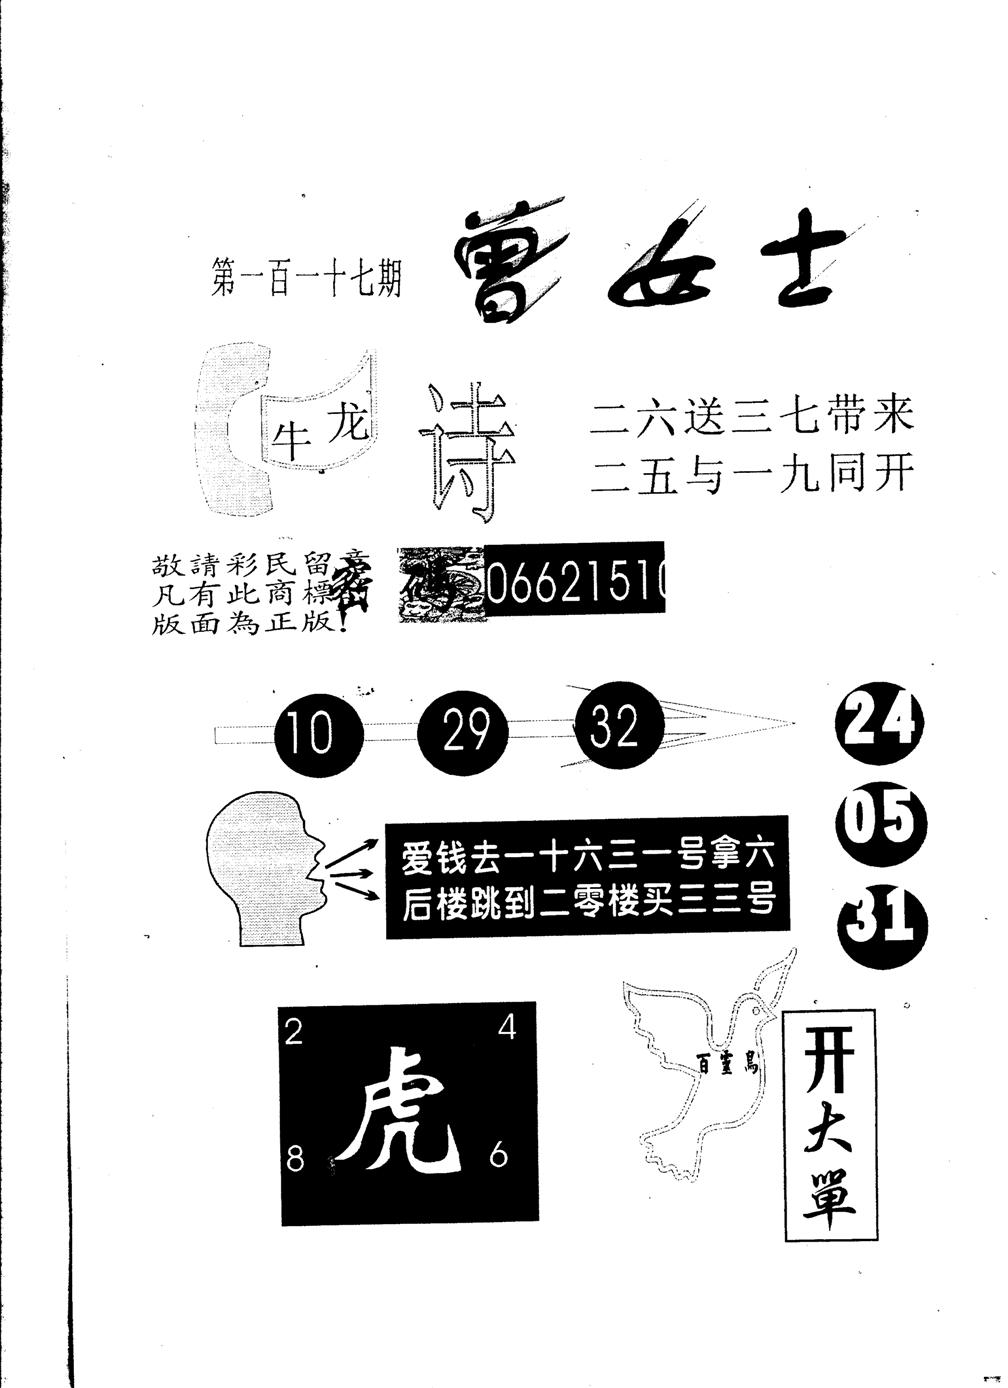 第一百一十七期
曾女士
牛龙
诗
二六送三七带来
二五与一九同开
敬請彩民留意
凡有此商標
版面為正版!
密码
06621510
10 29 32
24
05
31
爱钱去一十六三一号拿六
后楼跳到二零楼买三三号
2 4
虎
8 6
百靈鳥
开大單